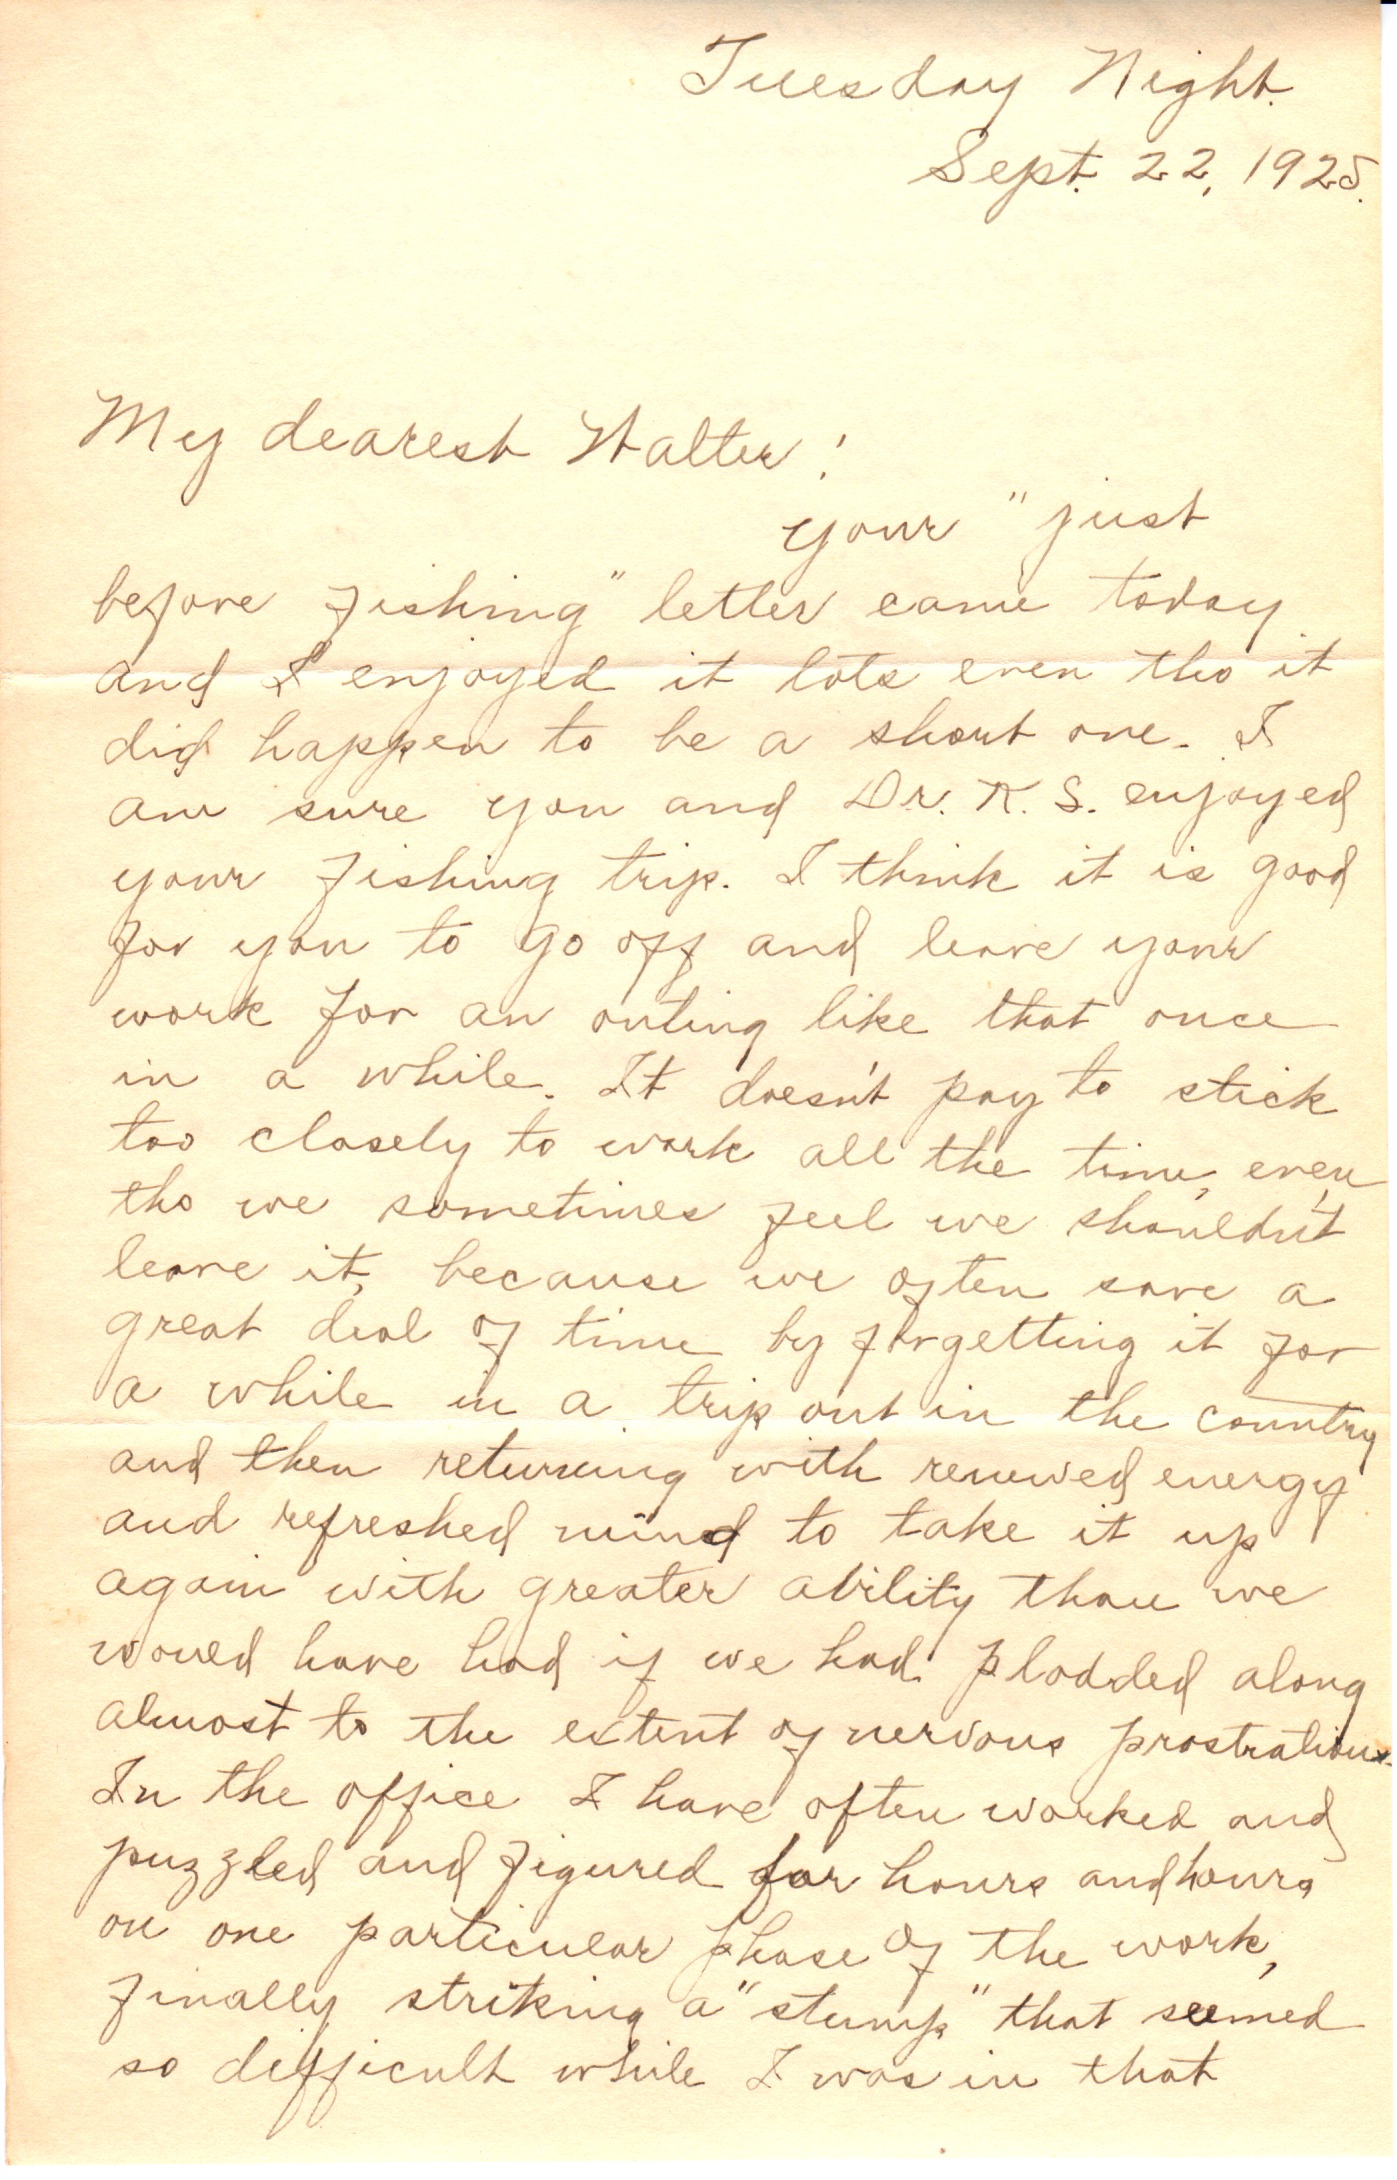 Tuesday Night.
Sept. 22, 1925.
My dearest Walter:
Your "just
before fishing" letter came today
and I enjoyed it lots even tho it
did happen to be a short one. I
am sure you and Dr. K. S. enjoyed
your fishing trip. I think it is good
for you to go off and leave your
work for an outing like that once
in a while. It doesn't pay to stick
too closely to work all the time, even
tho we sometimes feel we shouldn't
leave it, because we often save a
great deal of time by forgetting it for
a while in a trip out in the country
and then returning with renewed energy
and refreshed mind to take it up
again with greater ability than we
would have had if we had plodded along
almost to the extent of nervous prostration.
In the office I have often worked and
puzzled and figured for hours and hours
on one particular phase of the work,
finally striking a "stump" that seemed
so difficult while I was in that